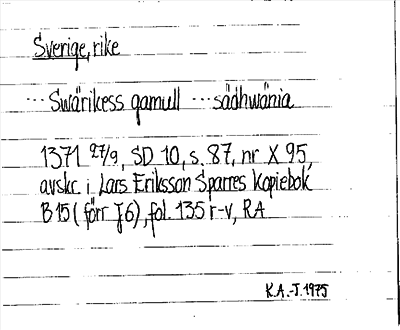 Sverige, rike
··· Swärikess gamull ··· sädhwänia
1371 27/9, SD 10, s. 87, nr X 95,
avskr. i Lars Eriksson Sparres Kopiebok
B 15 (förr J 6), fol. 135 r-v, RA
K.A.-J. 1975